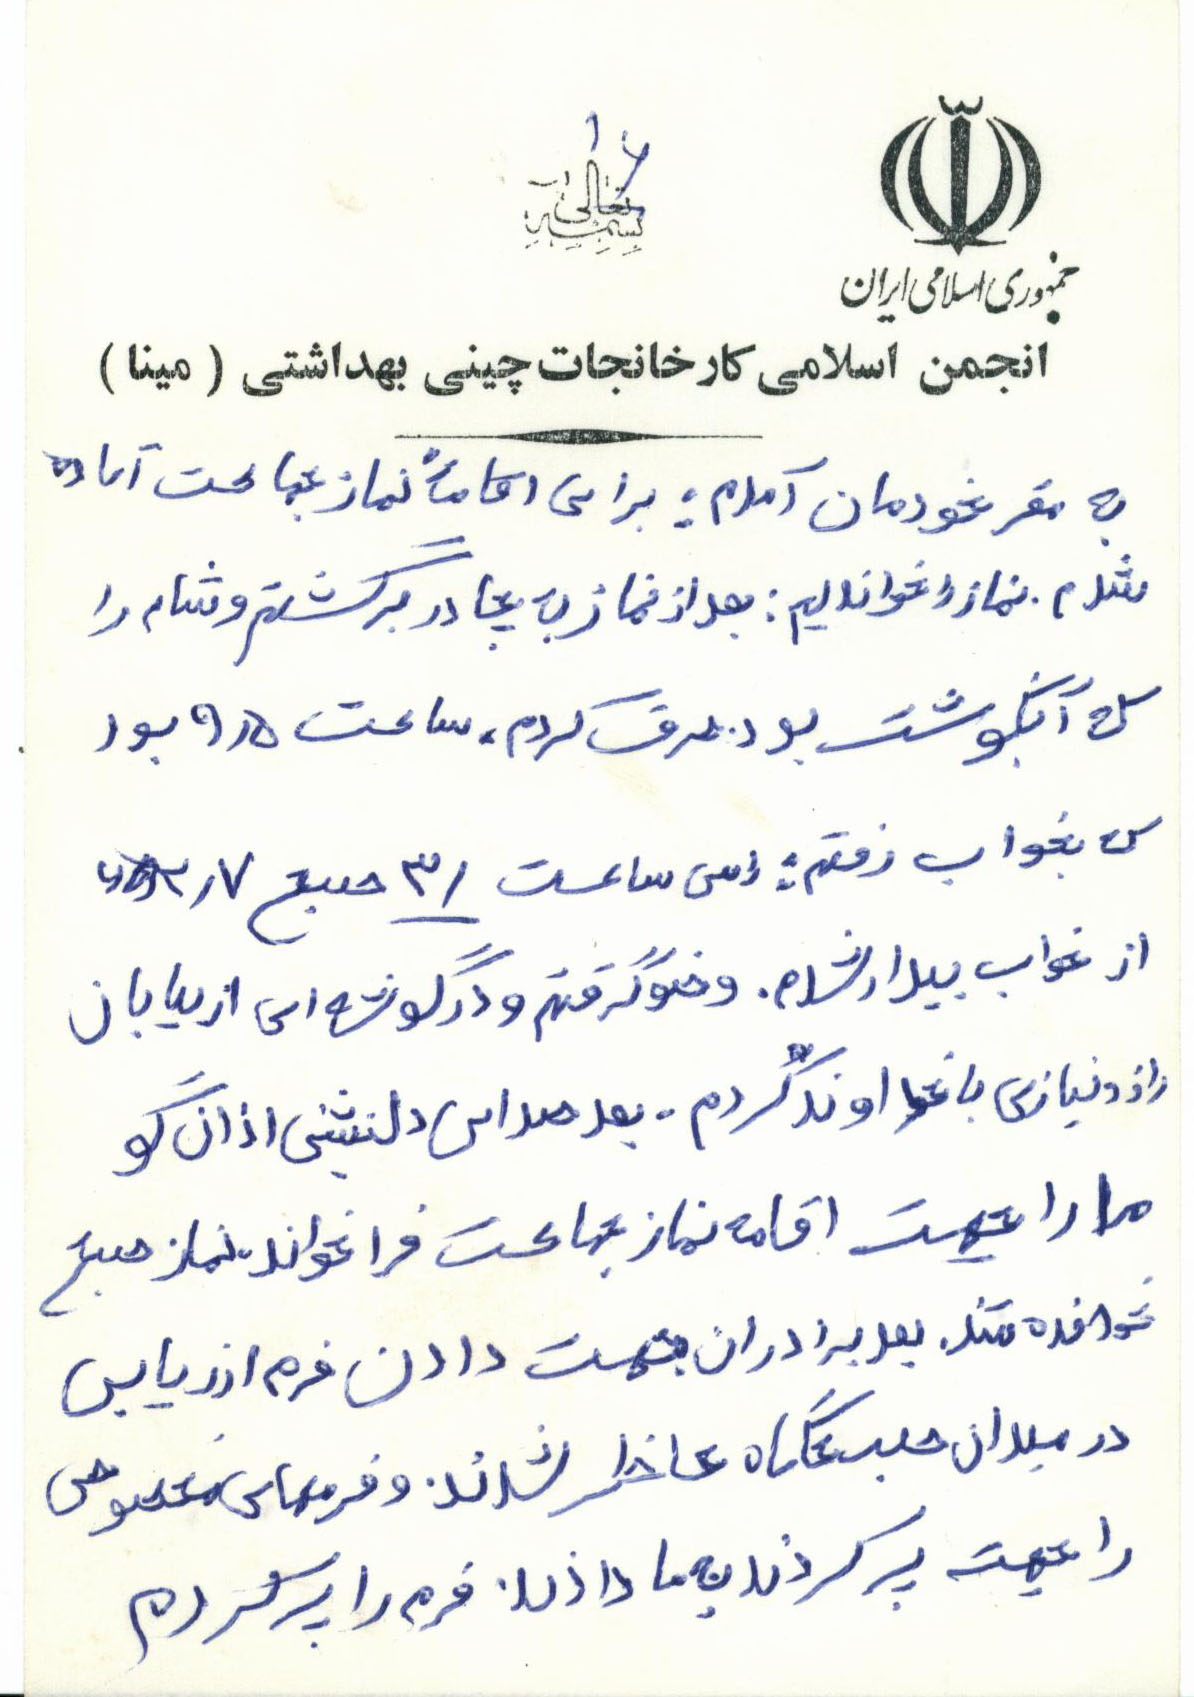 ۱۶
بسمه تعالی
جمهوری اسلامی ایران
انجمن اسلامی کارخانجات چینی بهداشتی (مینا)
به مقر خودمان آمدم؛ برای اقامهٔ نماز جماعت آماده
شدم. نماز را خواندیم؛ بعد از نماز به چادر برگشتم و شام را
که آبگوشت بود صرف کردم، ساعت ۹٫۵ بود
که بخواب رفتم؛ راس ساعت ۳/۱ صبح
از خواب بیدار شدم. وضو گرفتم و در گوشه ای از بیابان
راز و نیازی با خداوند کردم - بعد صدای دلنشنی اذان گو
ما را جهت اقامه نماز جماعت فرا خواند. نماز صبح
خوانده شد. بعد برادران جهت دادن فرم ارزیابی
در میدان صبحگاه حاضر شدند. و فرمهای مخصوصی
را جهت پر کردن به ما دادند. فرم را پر کردم